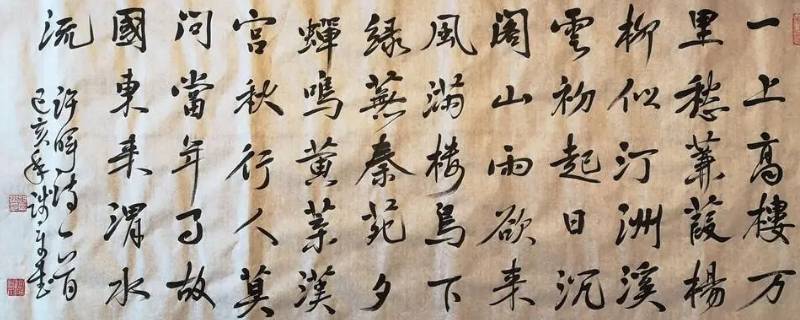 一上高樓万
里愁蒹葭楊
柳似汀洲溪
雲初起日沉
阁山雨欲来
風满楼鸟下
緑蕪秦苑夕
蟬鳴黄葉漢
宫秋行人莫
问當年事故
國東来渭水
流
许晖诗一首
己亥年书